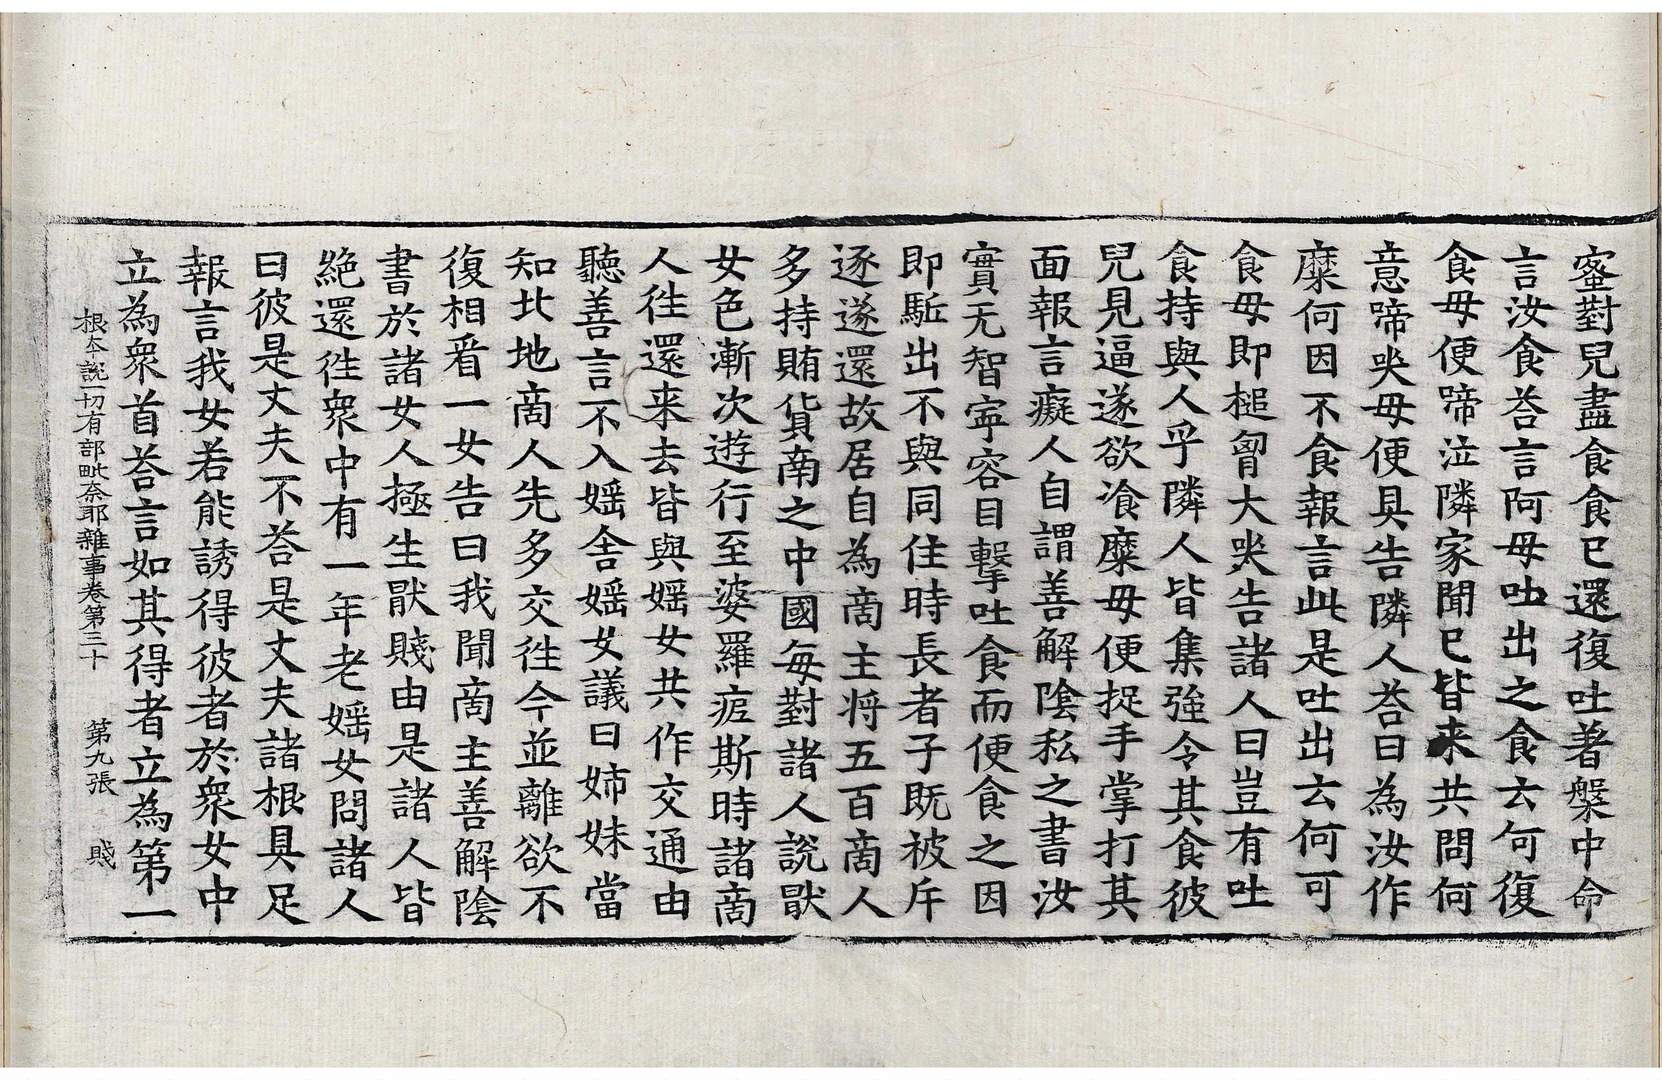 蜜對兒盡食食已還復吐著槃中命
言汝食荅言阿母吐出之食云何復
食母便啼泣隣家聞已皆来共問何
意啼哭母便具告隣人荅曰為汝作
糜何因不食報言此是吐出云何可
食母即槌胷大哭告諸人曰豈有吐
食持與人乎隣人皆集強令其食彼
兒見逼遂欲飡糜母便捉手掌打其
面報言癡人自謂善解陰私之書汝
實无智寧容目擊吐食而便食之因
即駈出不與同住時長者子既被斥
逐遂還故居自為啇主将五百啇人
多持賄貨啇之中國每對諸人說猒
女色漸次遊行至婆羅痆斯時諸啇
人徃還来去皆與婬女共作交通由
聽善言不入婬舍婬女議曰姉妹當
知北地啇人先多交徃今並離欲不
復相看一女告曰我聞啇主善解陰
書於諸女人極生猒賤由是諸人皆
絶還徃衆中有一年老婬女問諸人
曰彼是丈夫不荅是丈夫諸根具足
報言我女若能誘得彼者於衆女中
立為衆首荅言如其得者立為第一
根本說一切有部毗奈耶雜事卷第三十 第九張 賤